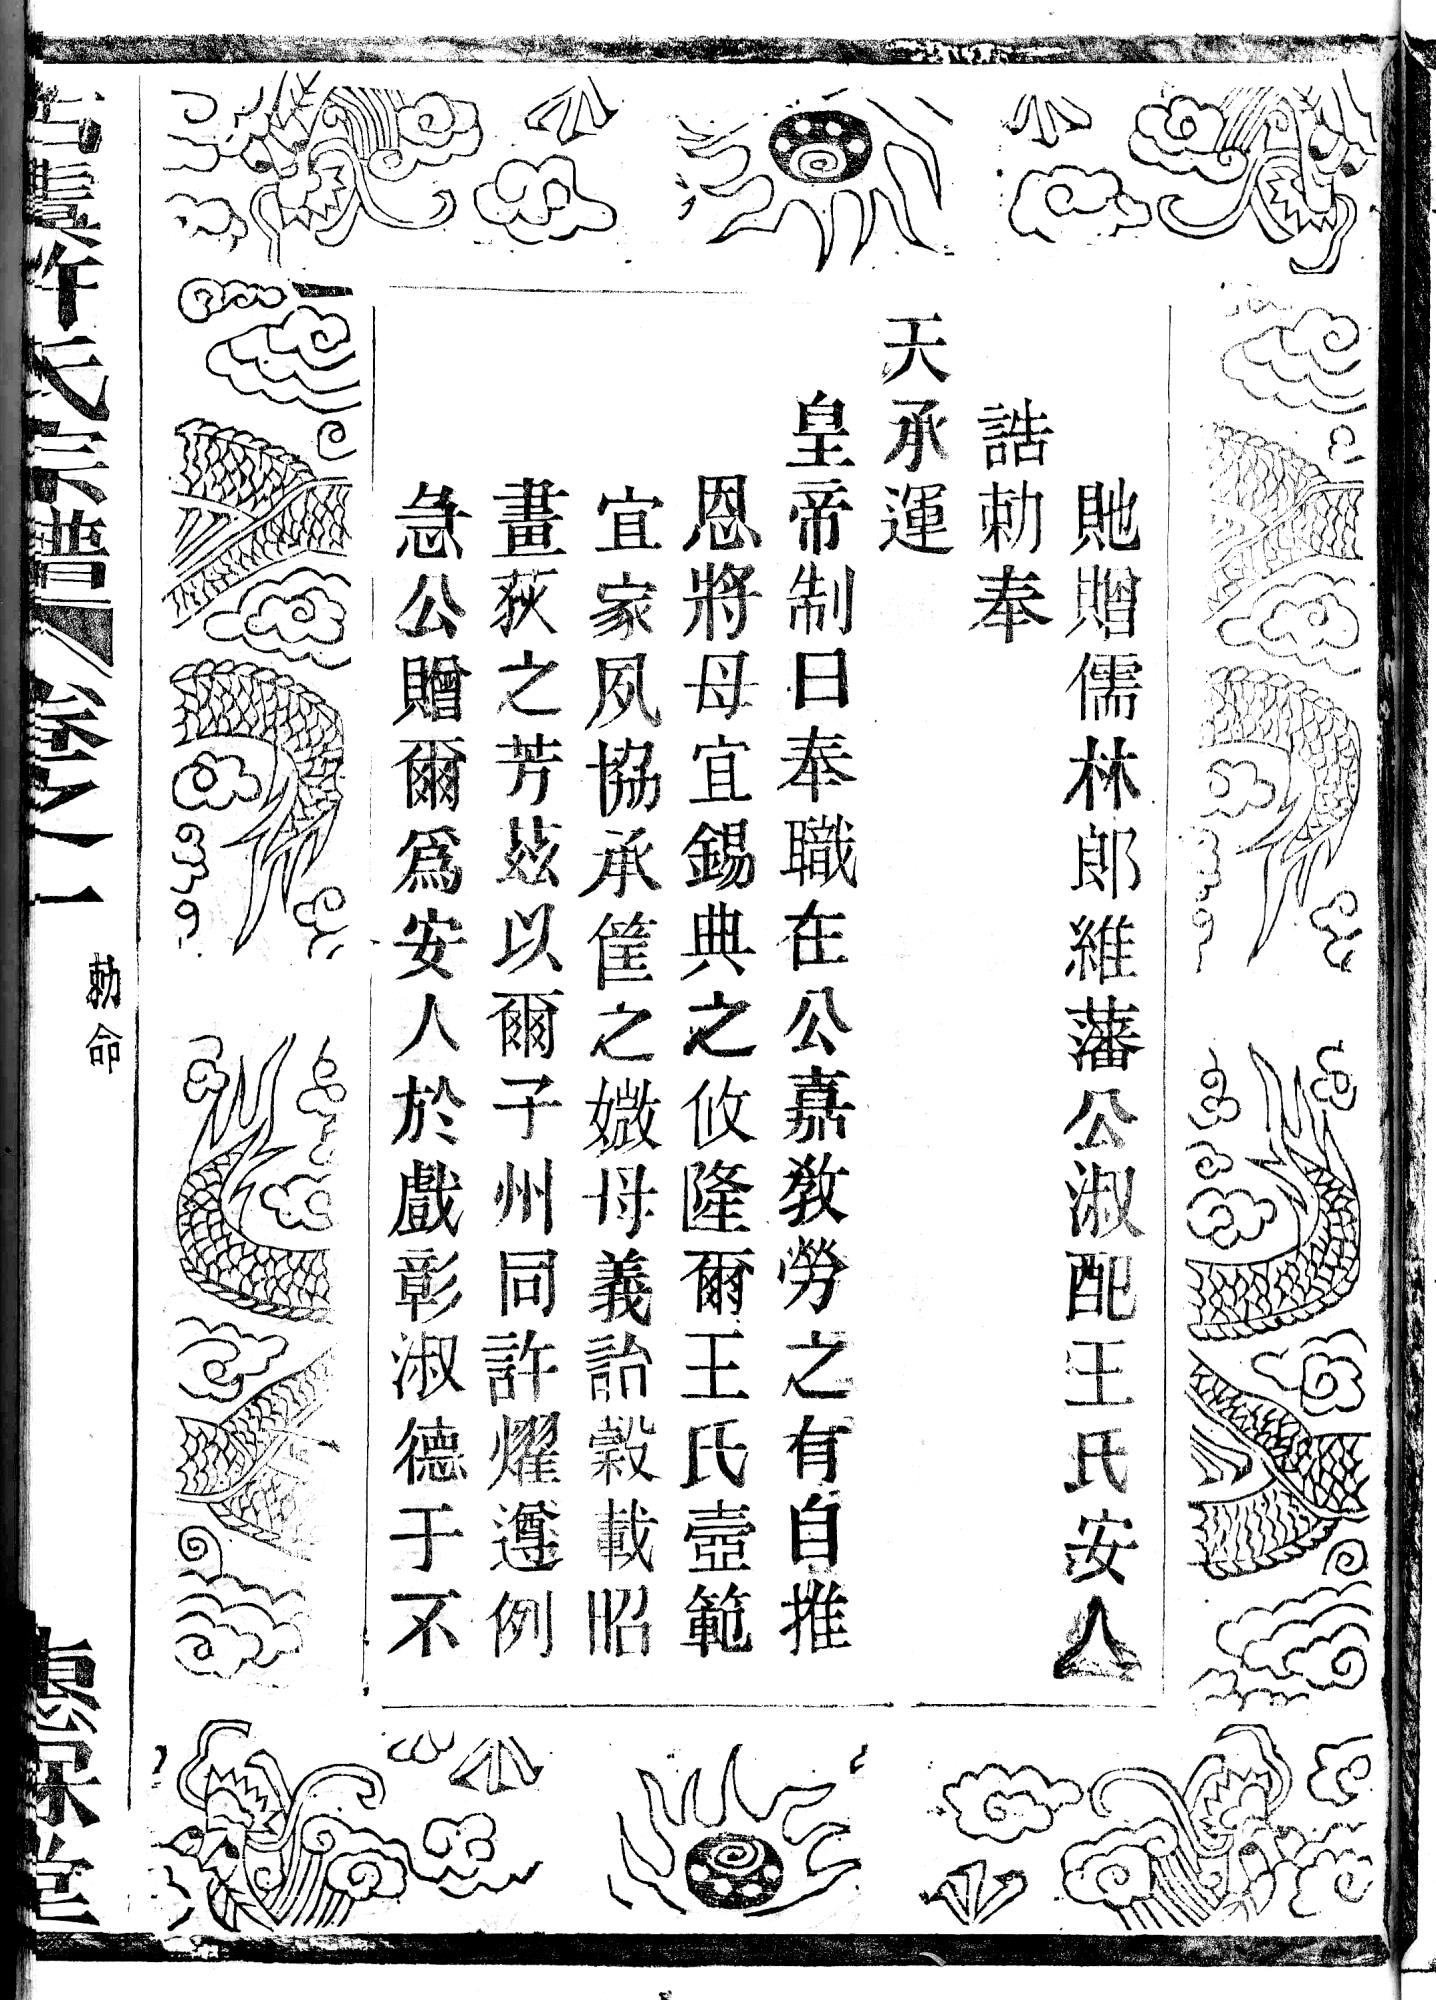 貤贈儒林郎維藩公淑配王氏安人
誥勅奉
天承運
皇帝制曰奉職在公嘉敎勞之有自推
恩將母宜錫典之攸隆爾王氏壼範
宜家夙協承筐之媺母義詒穀載昭
畫荻之芳茲以爾子州同許燿遵例
急公贈爾爲安人於戲彰淑德于不
許氏宗譜 卷之一
勅命
堂